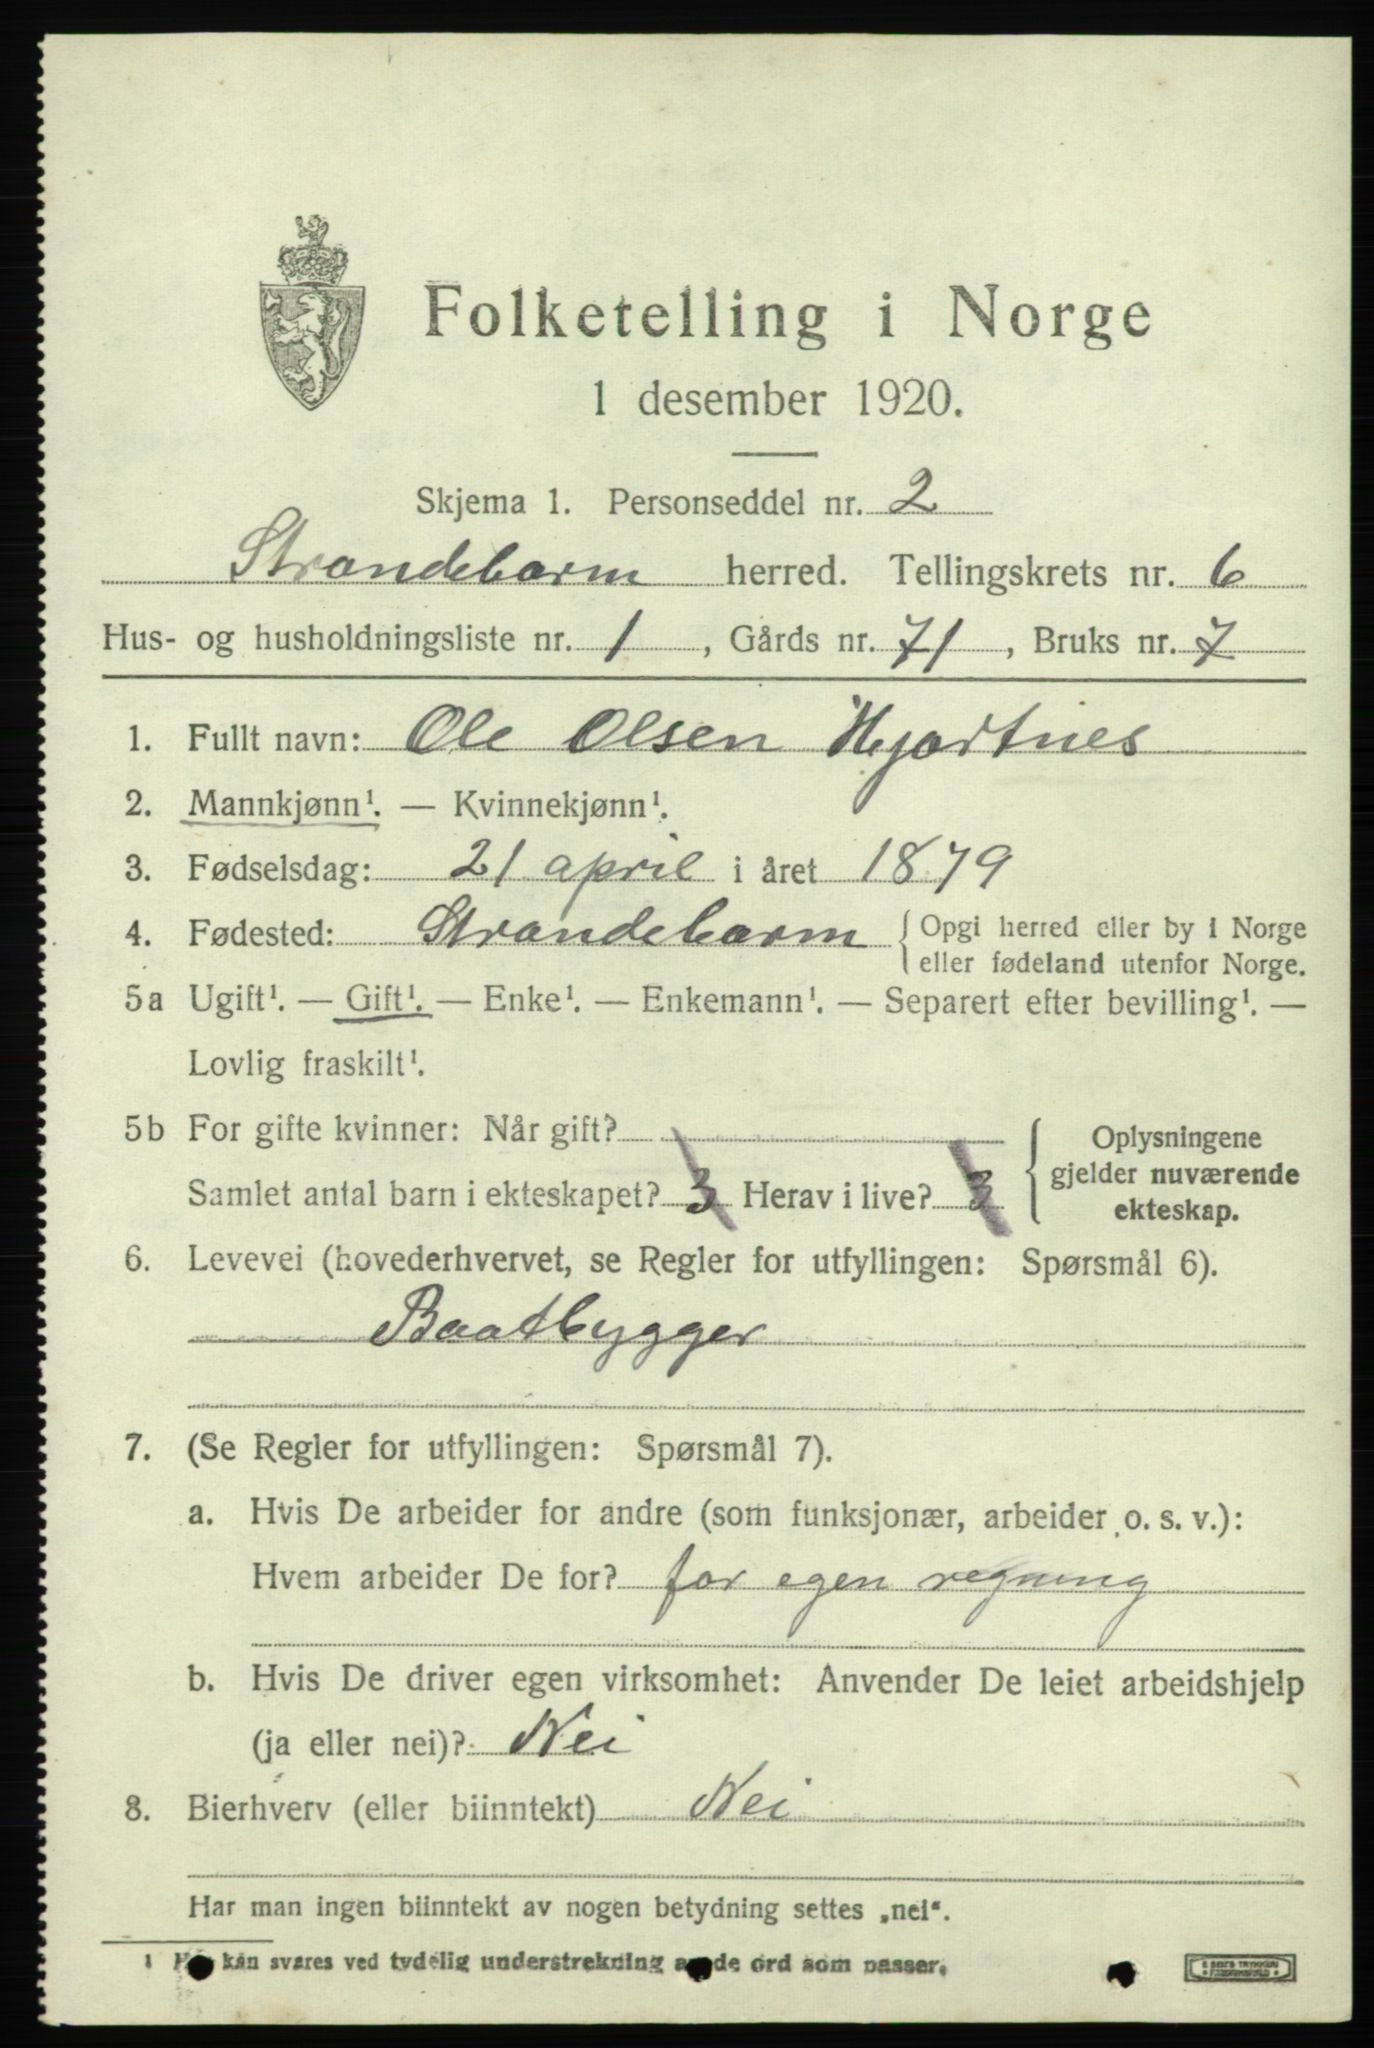 Folketelling i Norge
1 desember 1920.
Skjema 1. Personseddel nr. 2
Strandebarm herred. Tellingskrets nr. 6
Hus- og husholdningsliste nr. 1, Gårds nr. 71, Bruks nr. 7
1. Fullt navn: Ole Olsen Hjartnes
2. Mannkjønn¹. — Kvinnekjønn¹.
3. Fødselsdag: 21 april i året 1879
4. Fødested: Strandebarm { Opgi herred eller by i Norge
eller fødeland utenfor Norge.
5a Ugift¹. — Gift¹. — Enke¹. — Enkemann¹. — Separert efter bevilling¹. —
Lovlig fraskilt¹.
5b For gifte kvinner: Når gift?
Samlet antal barn i ekteskapet? 3 Herav i live? 3
{ Oplysningene
gjelder nuværende
ekteskap.
6. Levevei (hovederhvervet, se Regler for utfyllingen: Spørsmål 6).
Baatbygger
7. (Se Regler for utfyllingen: Spørsmål 7).
a. Hvis De arbeider for andre (som funksjonær, arbeider o. s. v.):
Hvem arbeider De for? for egen regning
b. Hvis De driver egen virksomhet: Anvender De leiet arbeidshjelp
(ja eller nei)? Nei
8. Bierhverv (eller biinntekt) Nei
Har man ingen biinntekt av nogen betydning settes „nei“.
1 kan svares ved tydelig understrekning av de ord som passer.